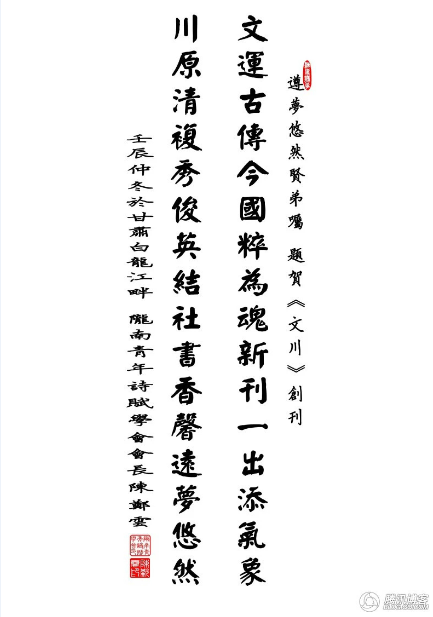 遵夢悠然賢弟囑 題賀《文川》創刊
文運古傳今國粹為魂新刊一出添氣象
川原清複秀俊英結社書香馨遠夢悠然
壬辰仲冬於甘肅白龍江畔 隴南青年詩賦學會會長陳鄭雲
腾讯博客